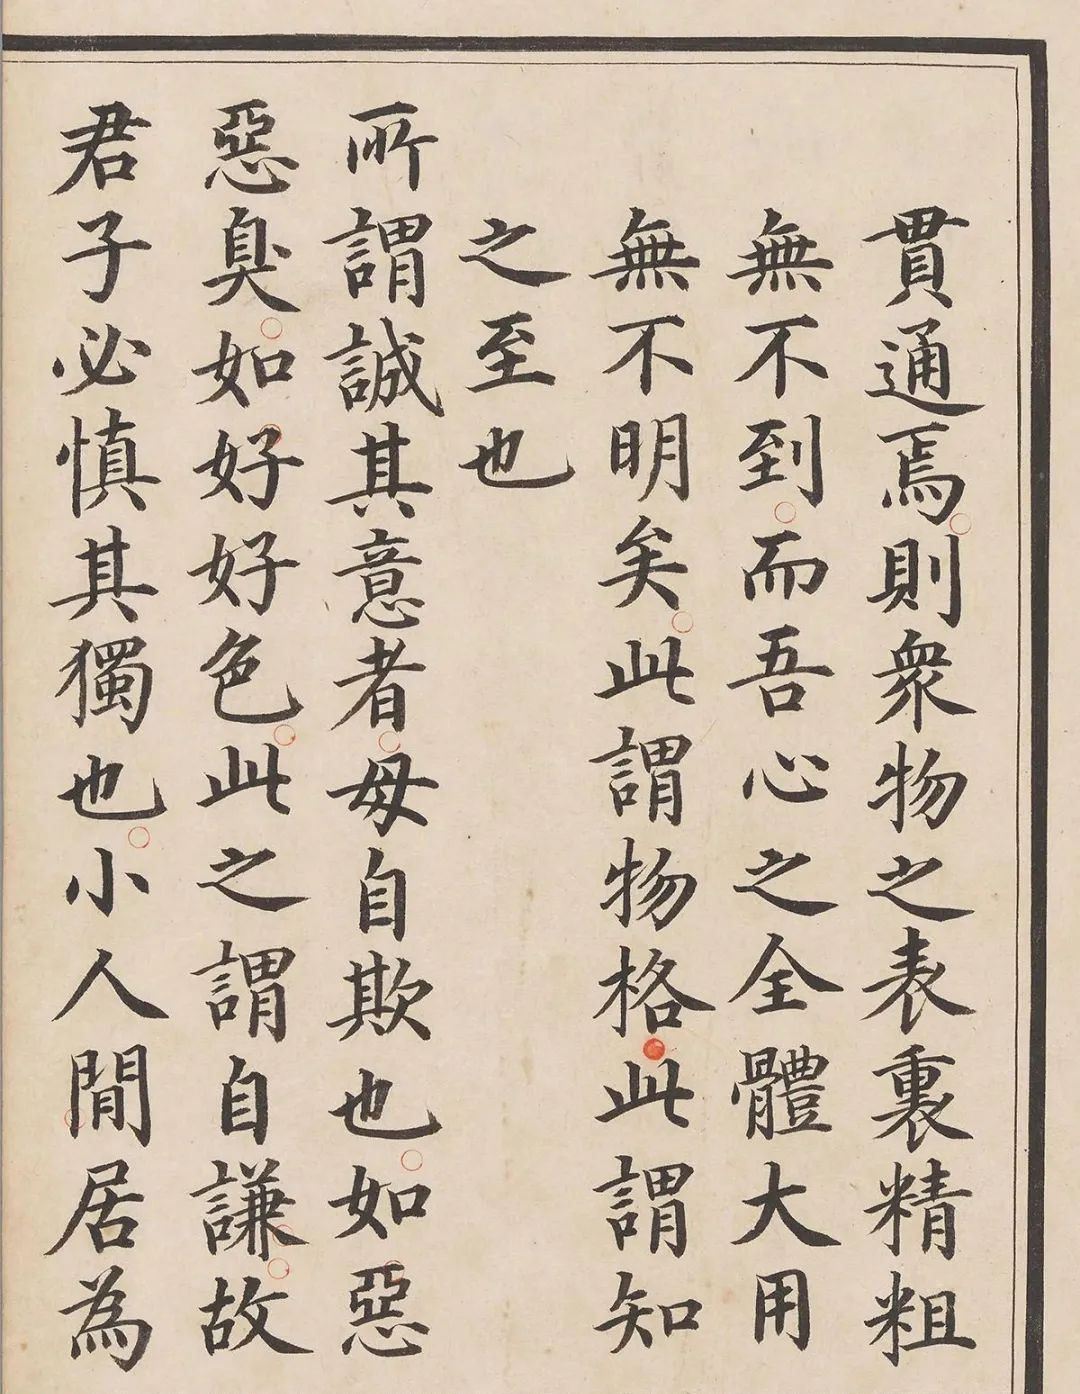 貫通焉則衆物之表裏精粗
無不到而吾心之全體大用
無不明矣此謂物格此謂知
之至也
所謂誠其意者毋自欺也如惡
惡臭如好好色此之謂自謙故
君子必慎其獨也小人閒居為